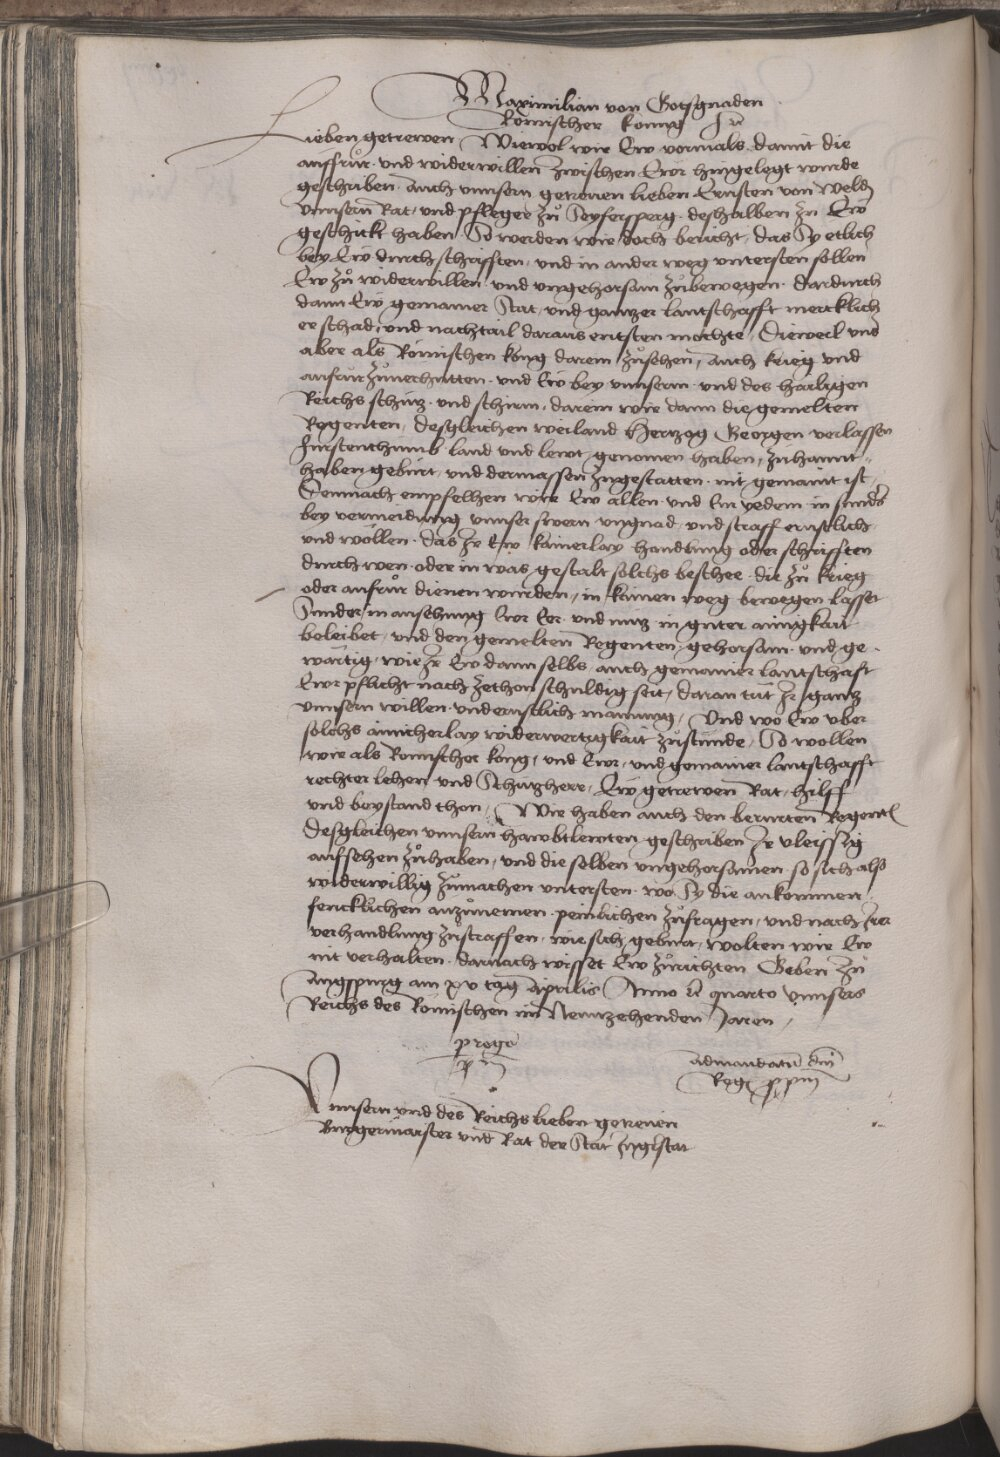 Maximilian von Gotsgnaden
Romischer konng ꝛc
Lieben getrewen Wiewol wir Ew vormals damit die
auffrůr und widerwillen zwischen Ewr hingelegt wurde
geschriben auch unnsern getrewen lieben Ernsten von Weld
unnsern Rat und pfleger zů Seyfersperg deshalben zu Ew
geschickt haben So werden wir doch bericht das Sy etlich
bey Ew durch schrifften und in ander weg untersten sollen
Ew zů widerwillen und ungehorsam zůbewegen dardurch
dann Ew gemainer Stat und gantzer lantschafft mercklich
er schad und nachtail daraus entsten mochte / Dieweil uns
aber als Römischen kong darein zůsehen auch krieg und
aufrur zuuerhutten und Ew bey unnserm und des hailigen
Reichs schutz und schirm darein wir dann die gemelten
Regenten / desgleichen weiland Hertzog Georgen verlassen
Furstenthumb land und lewt genomen haben / zu hannt-
haben geburt und dermassen zugestatten nit gemaint ist /
Demnach empfelhen wir Ew allen und Eur yedem in sunders
bey vermeidung unnser swern ungnad und straff ernstlich
und wöllen das Ir Ew kainerlay handlung oder schrifften
durch wen oder in was gestalt solchs beschee die zů krieg
oder aufrůr dienen wurden / in kainen weg bewegen lasset
Sunder in ansehung Ewr Eer und nutz in guter ainigkait
beleibet und den gemelten Regenten gehorsam und ge-
wartig wie Ir Ew dann selbs auch gemainer lantschaft
Ewr pflicht nach zethon schuldig seit / daran tut Ir gantz
unnsern willen und ernstlich mainung / Und wo Ew uber
solchs ainicherlay widerwertigkait zůstunde / So wollen
wir als Romischer kong / und Ewr und gemainer lantschafft
rechter lehen und Schutzherr / Ew getrewen Rat hilff
und beystand thon / Wir haben auch den berurten Regenten
desgleichen unnsern hawbtlewten geschriben Ir vleissig
aufsehen zůhaben / und dieselben ungehorsamen so sich also
widerwillig zůmachen untersten wo Sy die ankommen
fencklichen anzůnemen peinlichen zůfragen / und nach Irer
verhandlung zůstraffen / wie sich geburt / wolten wir Ew
nit verhalten darnach wisset Ew zůrichten Geben zu
Augspurg am xv tag Aprilis Anno ꝛc quarto unnsers
Reichs des Römischen im Newnzehenden Jaren /
p rege
p s
ad mandatū dm̄
Regꝭ ppm̄
Unnsern und des Reichs lieben getrewen
Burgermaister und Rat der Stat Ingelstat